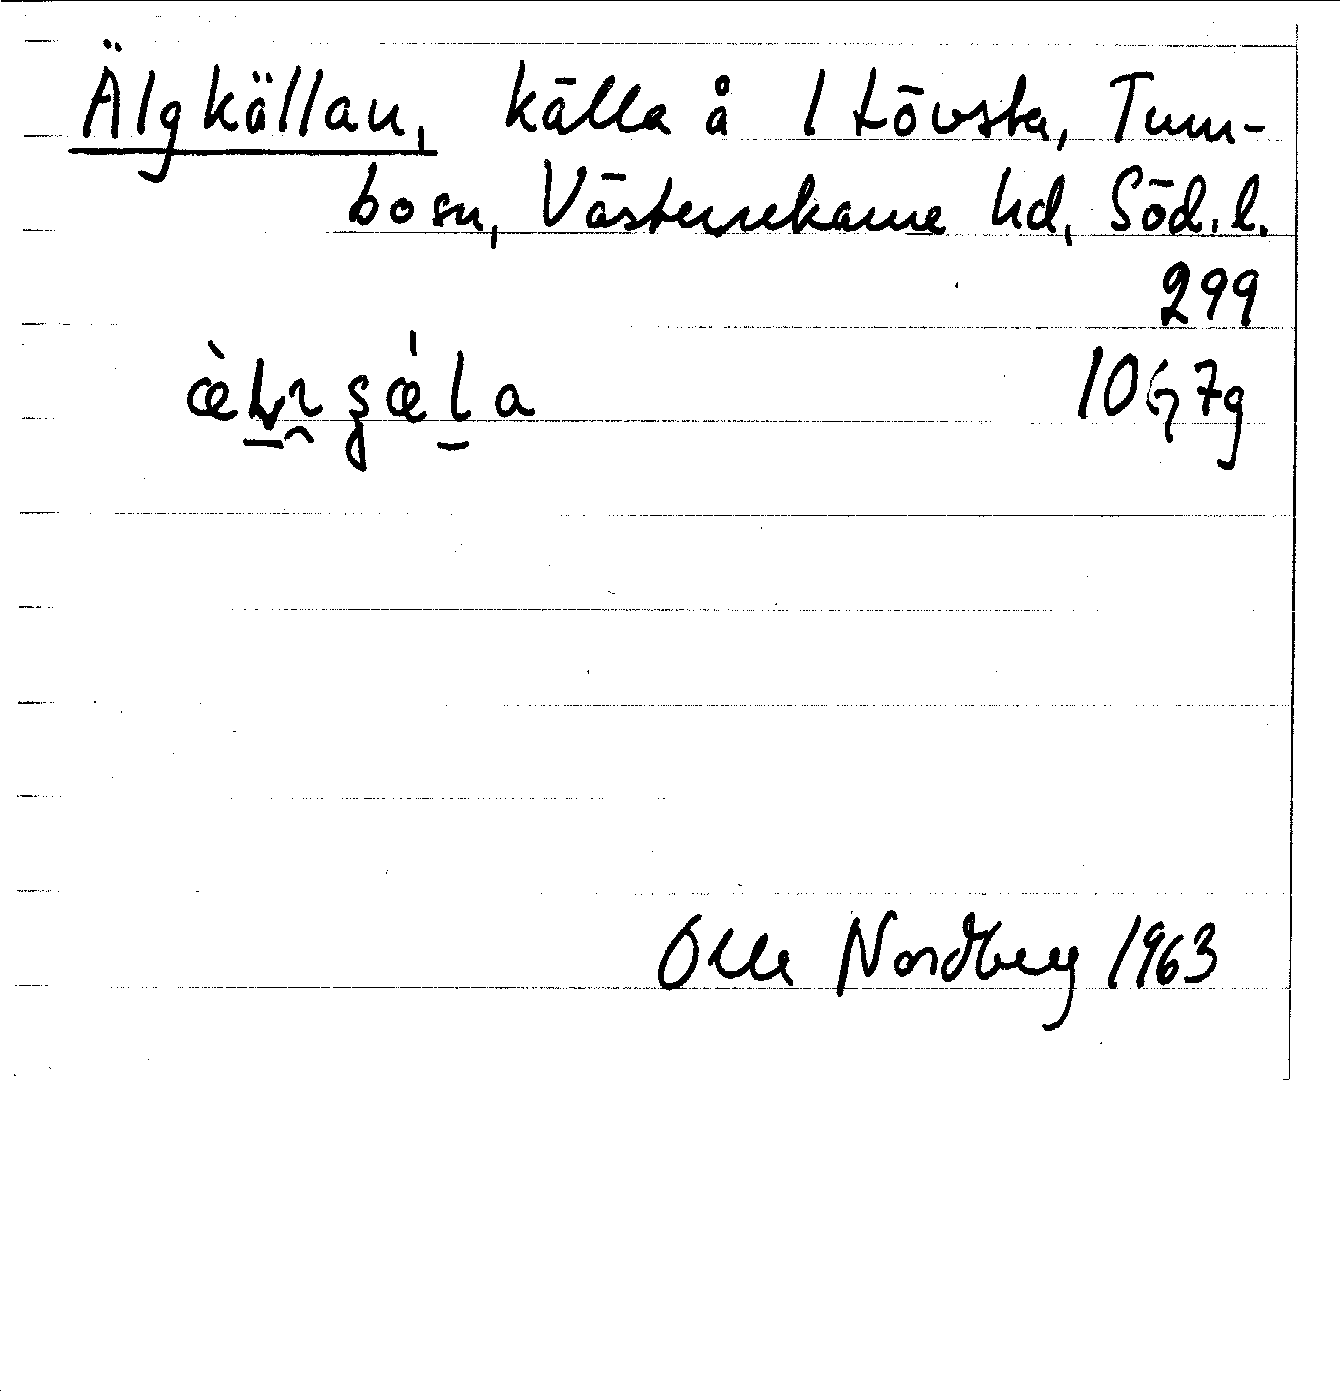 Älgkällan, källa å 1 Lövsta, Tum-
bo sn, Västerrekarne hd, Söd. l.
299
10G7g
Olle Nordberg 1963